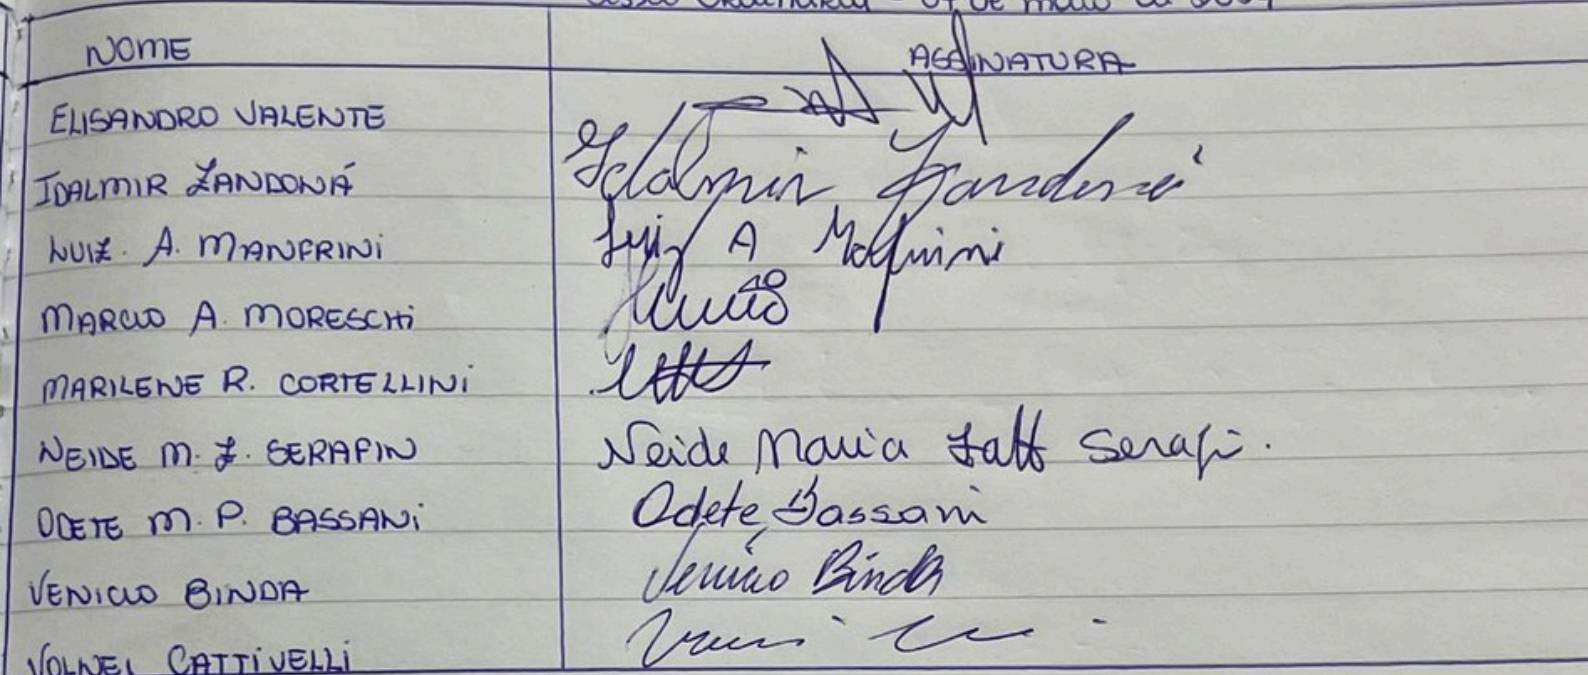 NOME ASSINATURA
ELISANDRO VALENTE
IDALMIR ZANDONÁ Idalmir Zandoná
LUIZ. A. MANFRINI Luiz A Manfrini
MARCIO A. MORESCHI
MARILENE R. CORTELLINI
NEIDE M. Z. SERAFIN Neide Maria Zatt Serafi.
ODETE M. P. BASSANI Odete Bassani
VENICIO BINDA Venicio Binda
VOLNEI CATTIVELLI